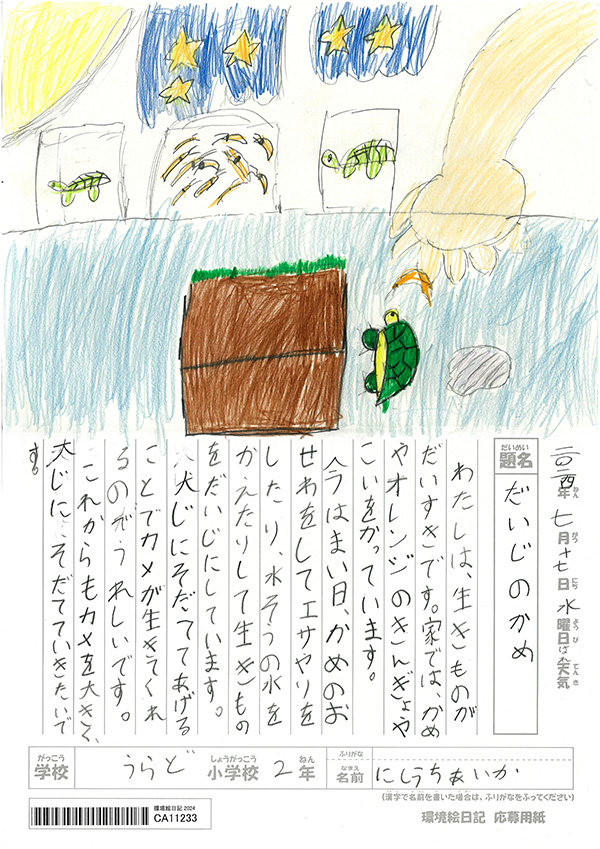 二〇二四年 七月十七日 水曜日 天気
ねん がつ にち ようび てんき
だいめい
題名 だいじのかめ
わたしは、生きものが
だいすきです。家では、かめ
やオレンジのきんぎょや
こいをかっています。
今はまい日、かめのお
せわをしてエサやりを
したり、水そうの水を
かえたりして生きもの
をだいじにしています。
大じにそだててあげる
ことでカメが生きてくれ
るのがうれしいです。
これからもカメを大きく、
大じに、そだてていきたいで
す。
がっこう しょうがっこう ねん ふりがな なまえ
学校 うらど 小学校 2年 名前 にしうちあいか
(漢字で名前を書いた場合は、ふりがなをふってください)
環境絵日記 2024
CA11233
環境絵日記 応募用紙